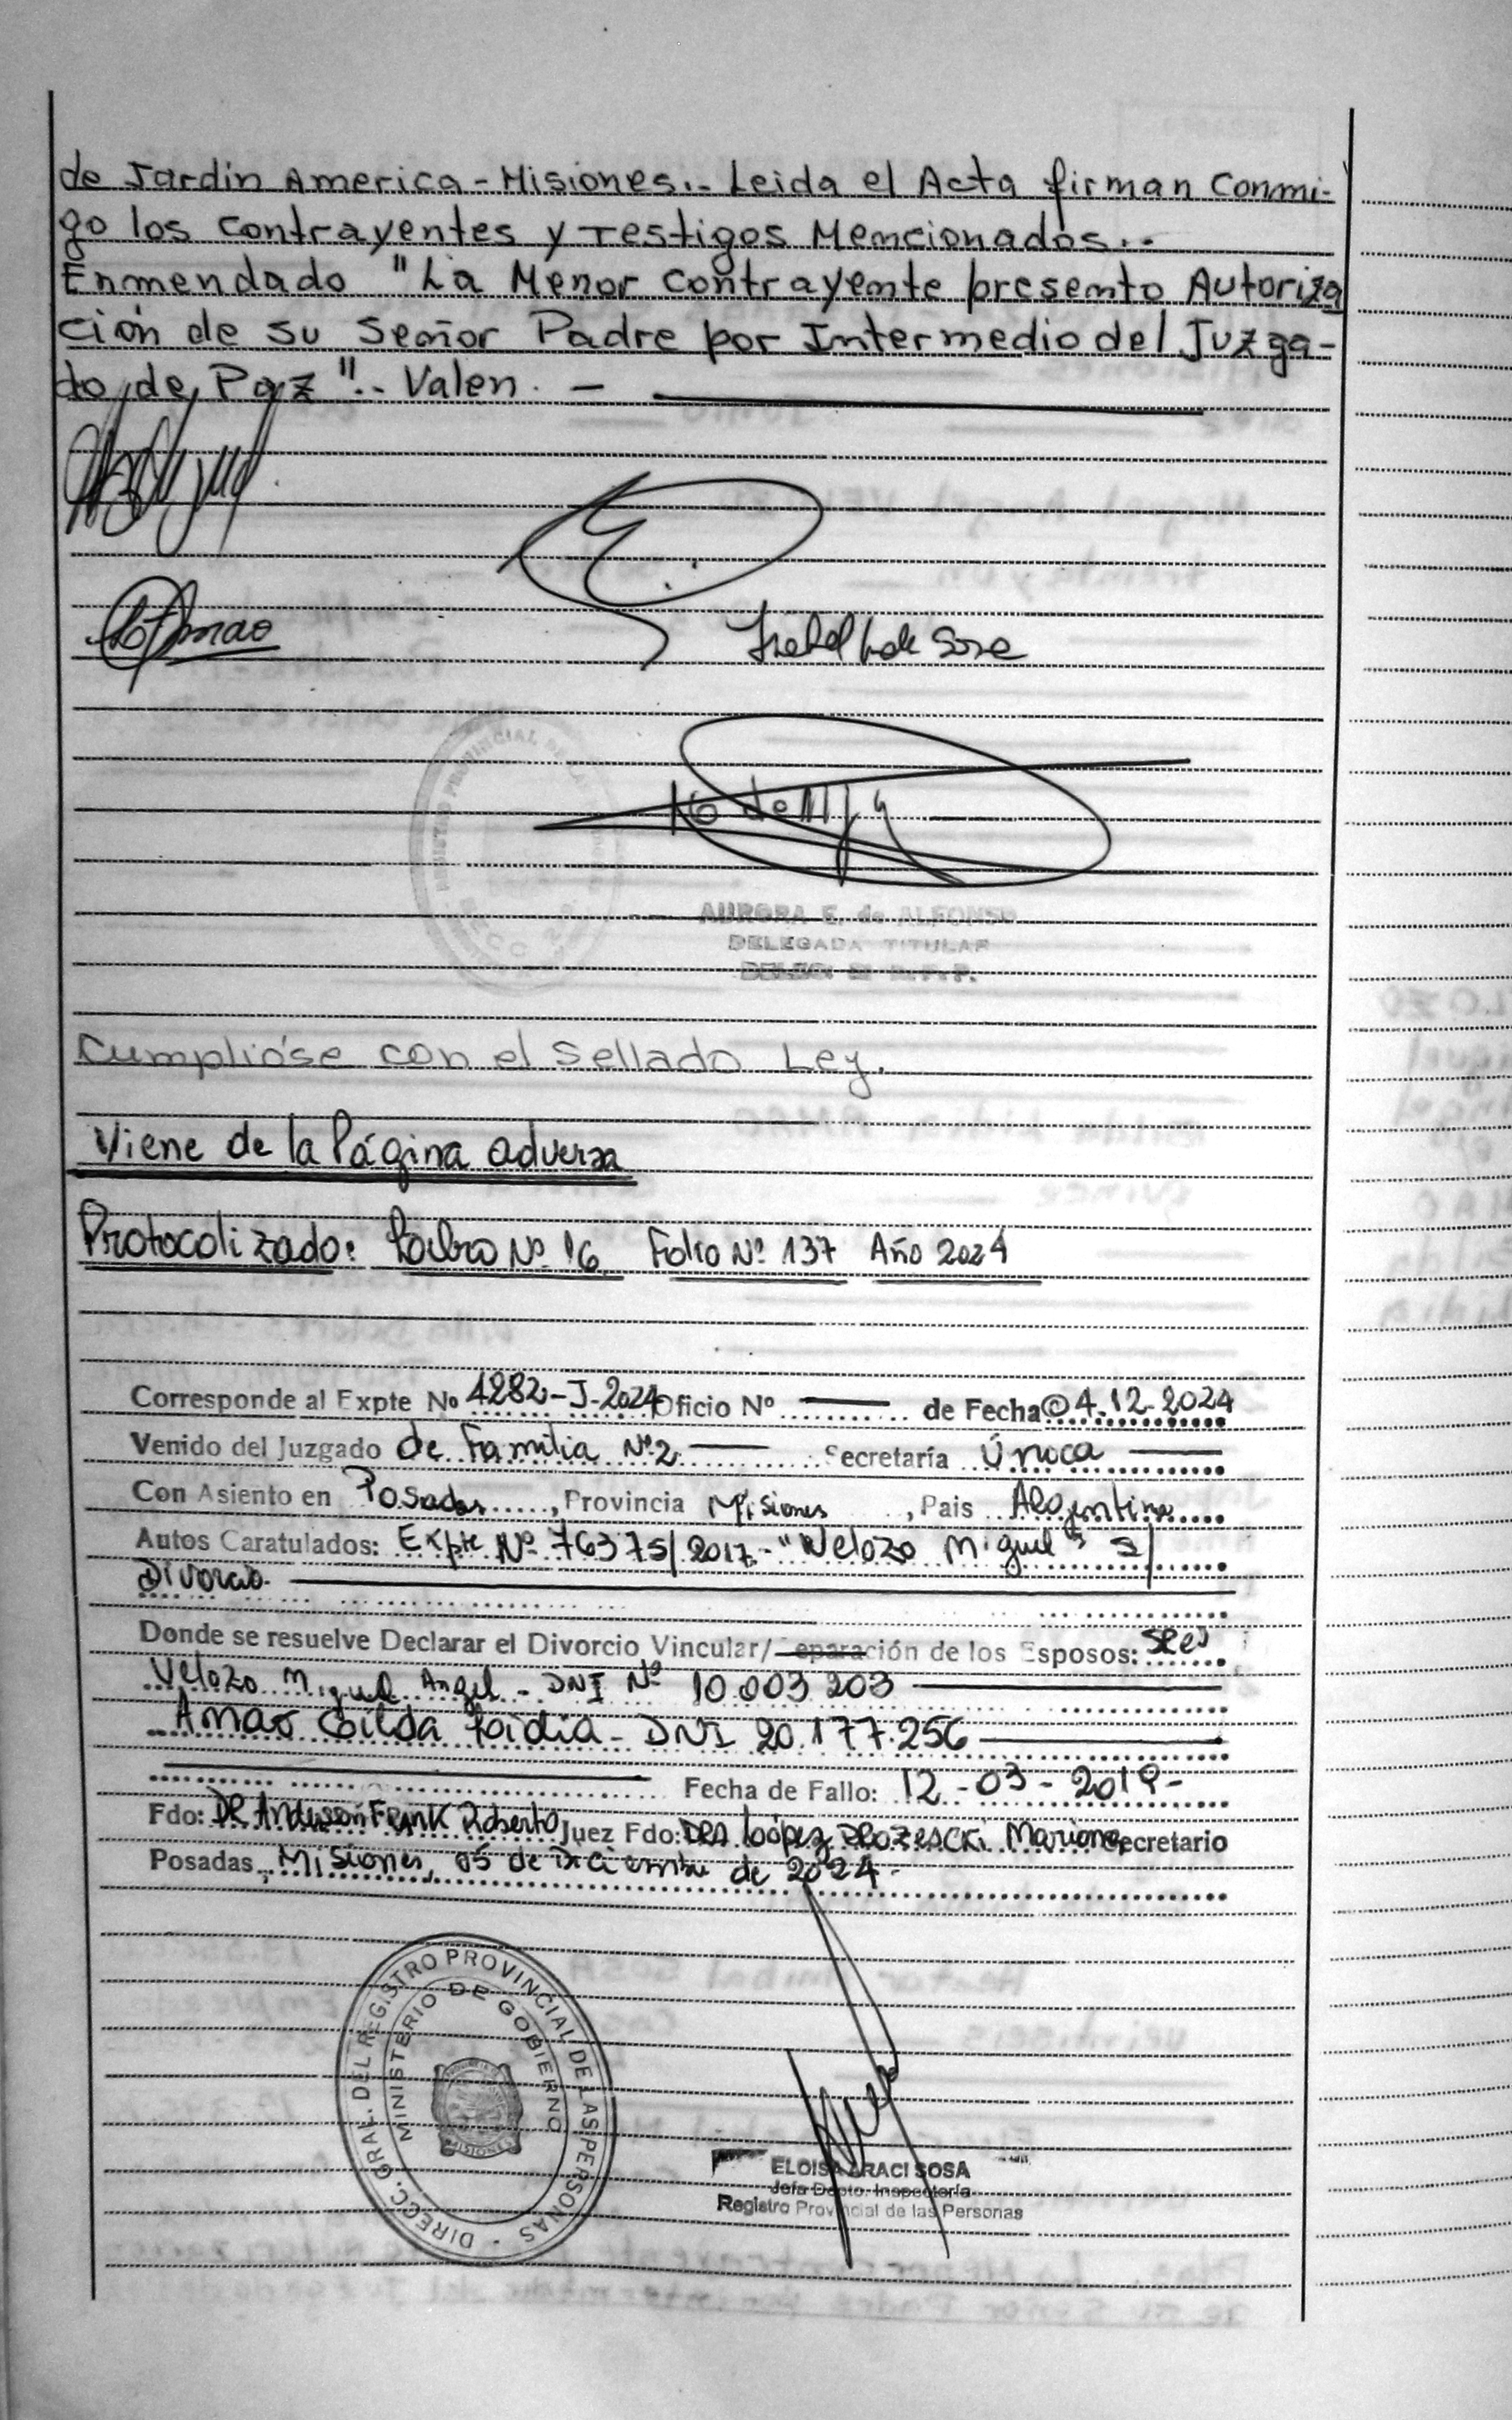 de Jardin America - Misiones.- Leida el Acta firman Conmi-
go los Contrayentes y Testigos Mencionados.-
Enmendado "La Menor Contrayente presento Autoriza
ción de su Señor Padre por Intermedio del Juzga-
do de Paz".- Valen. -
AURORA E. de ALFONSO
DELEGADA TITULAR
Cumplióse con el Sellado Ley.
Viene de la Página adversa
Protocolizado: Libro Nº 16 Folio Nº 137 Año 2024
Corresponde al Expte No 4282-J-2024 Oficio Nº de Fecha 04.12.2024
Venido del Juzgado de Familia Nº2 Secretaría Única
Con Asiento en Posadas, Provincia Misiones, Pais Argentina
Autos Caratulados: Expte Nº 76375/2017.- "Velozo Miguel s/
Divorcio.
Donde se resuelve Declarar el Divorcio Vincular/Separación de los Esposos:
Velozo Miguel Angel - DNI Nº 10.003.203
Amao Gilda Lidia - DNI 20.177.256
Fecha de Fallo: 12-03-2019-
Fdo: DR. Anderson Frank Roberto Juez Fdo: DRA. López Mariana Secretario
Posadas, Misiones, 05 de Diciembre de 2024-
DIRECC. GRAL. DEL REGISTRO PROVINCIAL DE LAS PERSONAS
MINISTERIO DE GOBIERNO
ELOISA ARACI SOSA
Jefa Depto. Inspectoría
Registro Provincial de las Personas